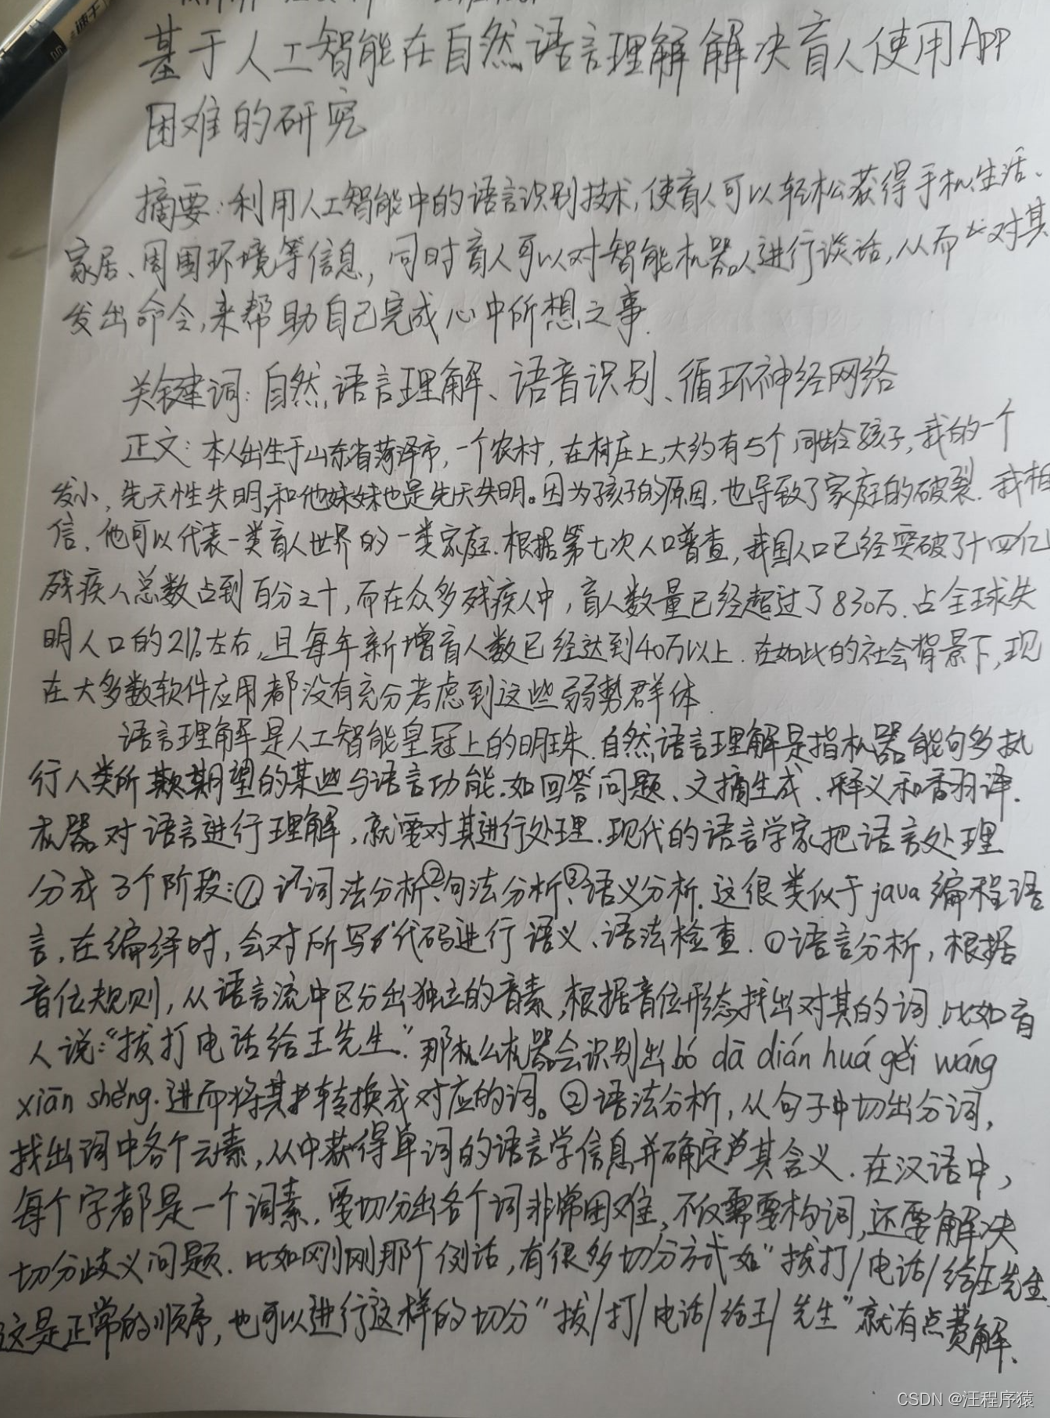 基于人工智能在自然语言理解解决盲人使用App
困难的研究
摘要:利用人工智能中的语言识别技术,使盲人可以轻松获得手机、生活、
家居、周围环境等信息,同时盲人可以对智能机器人进行谈话,从而对其
发出命令,来帮助自己完成心中所想之事.
关键词:自然语言理解、语音识别、循环神经网络
正文:本人出生于山东省菏泽市,一个农村,在村庄上,大约有5个同龄孩子,我的一个
发小,先天性失明,和他妹妹也是先天失明。因为孩子的原因,也导致了家庭的破裂.我相
信,他可以代表一类盲人世界的一类家庭.根据第七次人口普查,我国人口已经突破了十四亿
残疾人总数占到百分之十,而在众多残疾人中,盲人数量已经超过了830万.占全球失
明人口的21%左右,且每年新增盲人数已经达到40万以上.在如此的社会背景下,现
在大多数软件应用都没有充分考虑到这些弱势群体.
语言理解是人工智能皇冠上的明珠.自然语言理解是指机器能够执
行人类所期望的某些与语言功能.如回答问题、文摘生成、释义和翻译.
机器对语言进行理解,就要对其进行处理.现代的语言学家把语言处理
分成3个阶段:①词法分析②句法分析、③语义分析.这很类似于java编程语
言,在编绎时,会对所写代码进行语义、语法检查.①语言分析,根据
音位规则,从语言流中区分出独立的音素,根据音位形态找出对其的词.比如盲
人说:“拔打电话给王先生”.那么机器会识别出bó dā dián huá gěi wáng
xiān shēng.进而将其转换成对应的词。②语法分析,从句子中切出分词,
找出词中各个元素,从中获得单词的语言学信息并确定其含义.在汉语中,
每个字都是一个词素.要切分出各个词非常困难,不仅需要构词,还要解决
切分歧义问题.比如刚刚那个例话,有很多切分方式如“拔打/电话/给王先生
这是正常的顺序,也可以进行这样的切分“拔/打/电话/给王/先生”就有点费解.
CSDN @汪程序猿